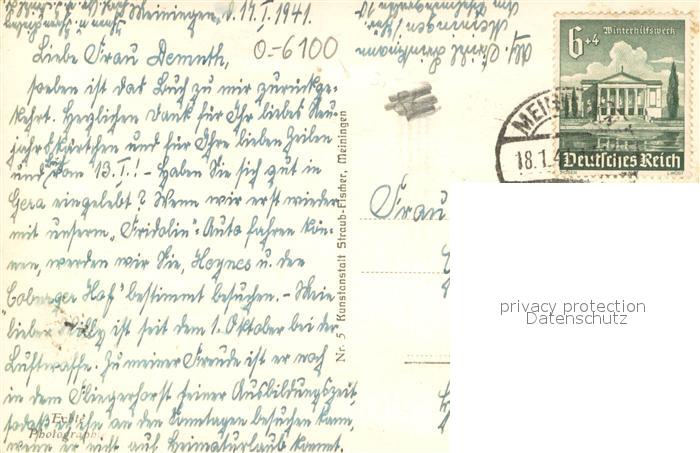 Meiningen, d. 17. I. 1941.
Liebe Frau Demuth,
0.-6100
soeben ist das Buch zu mir zurückge-
kehrt. Herzlichen Dank für Ihr liebes Neu-
jahrskärtchen und für Ihre lieben Zeilen
und vom 13. I.! - Haben Sie sich gut in
Gera eingelebt? Wenn wir erst wieder
mit unserm "Fridolin"-Auto fahren kön-
nen, werden wir Sie, Heynes u. den
"Coburger Hof" bestimmt besuchen. - Mein
lieber Willy ist seit dem 1. Oktober bei der
Luftwaffe. Zu meiner Freude ist er noch
in dem Fliegerhorst seiner Ausbildungszeit,
sodaß ich ihn an den Sonntagen besuchen kann,
wenn er nicht auf Heimaturlaub kommt.
Echte
Photographie
Nr. 5 Kunstanstalt Straub-Fischer, Meiningen
Meiningen
6+4
Winterhilfswerk
Deutsches Reich
MEI
18.1.4
Frau
privacy protection
Datenschutz